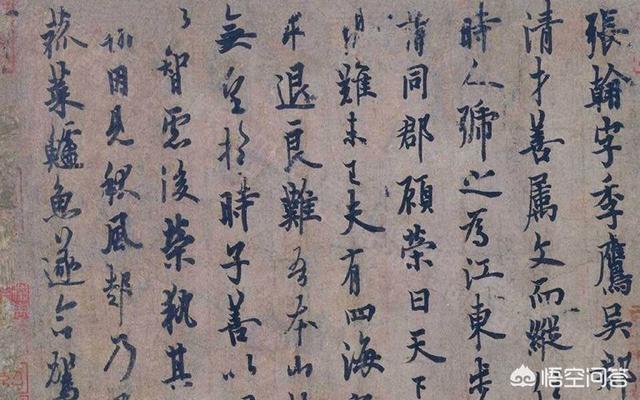 張翰字季鷹吳郡
清才善屬文而縱
時人號之為江東步
謂同郡顧榮曰天下
難未已夫有四海
求退良難吾本山
無望於時子善以
智慮後榮執其
翰因見秋風起乃
菰菜鱸魚遂命駕
悟空问答